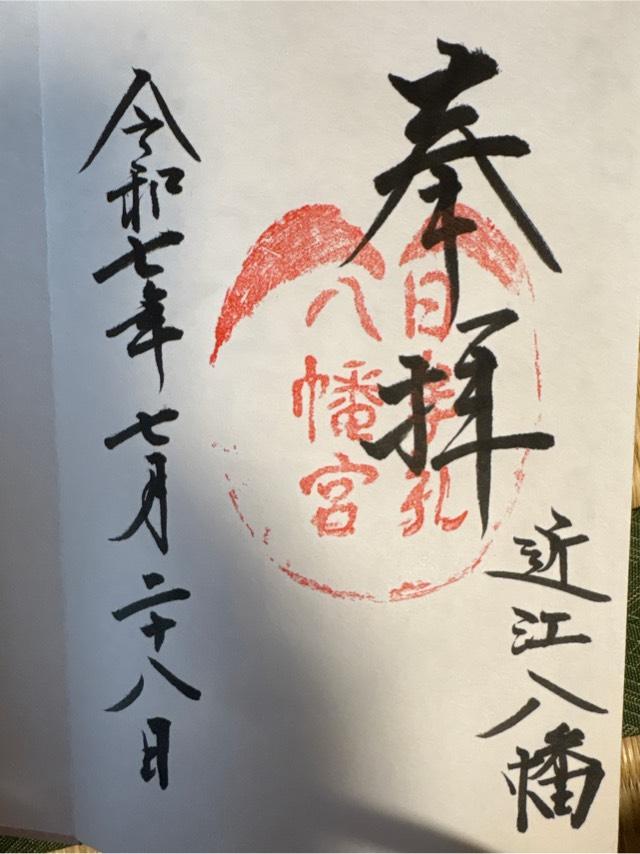 奉拝
近江八幡
日牟礼
八幡宮
令和七年七月二十八日